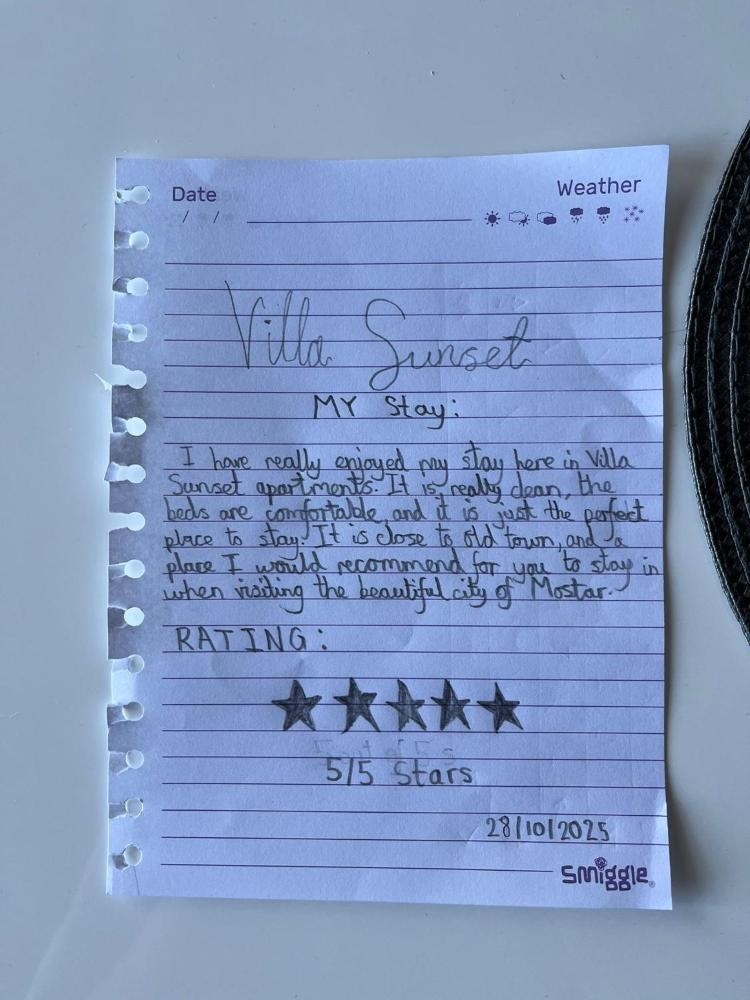 Date
Weather
/ /
Villa Sunset
MY Stay:
I have really enjoyed my stay here in Villa
Sunset apartments. It is really clean, the
beds are comfortable, and it is just the perfect
place to stay. It is close to old town, and a
place I would recommend for you to stay in
when visiting the beautiful city of Mostar.
RATING:
5/5 Stars
28/10/2025
smiggle®